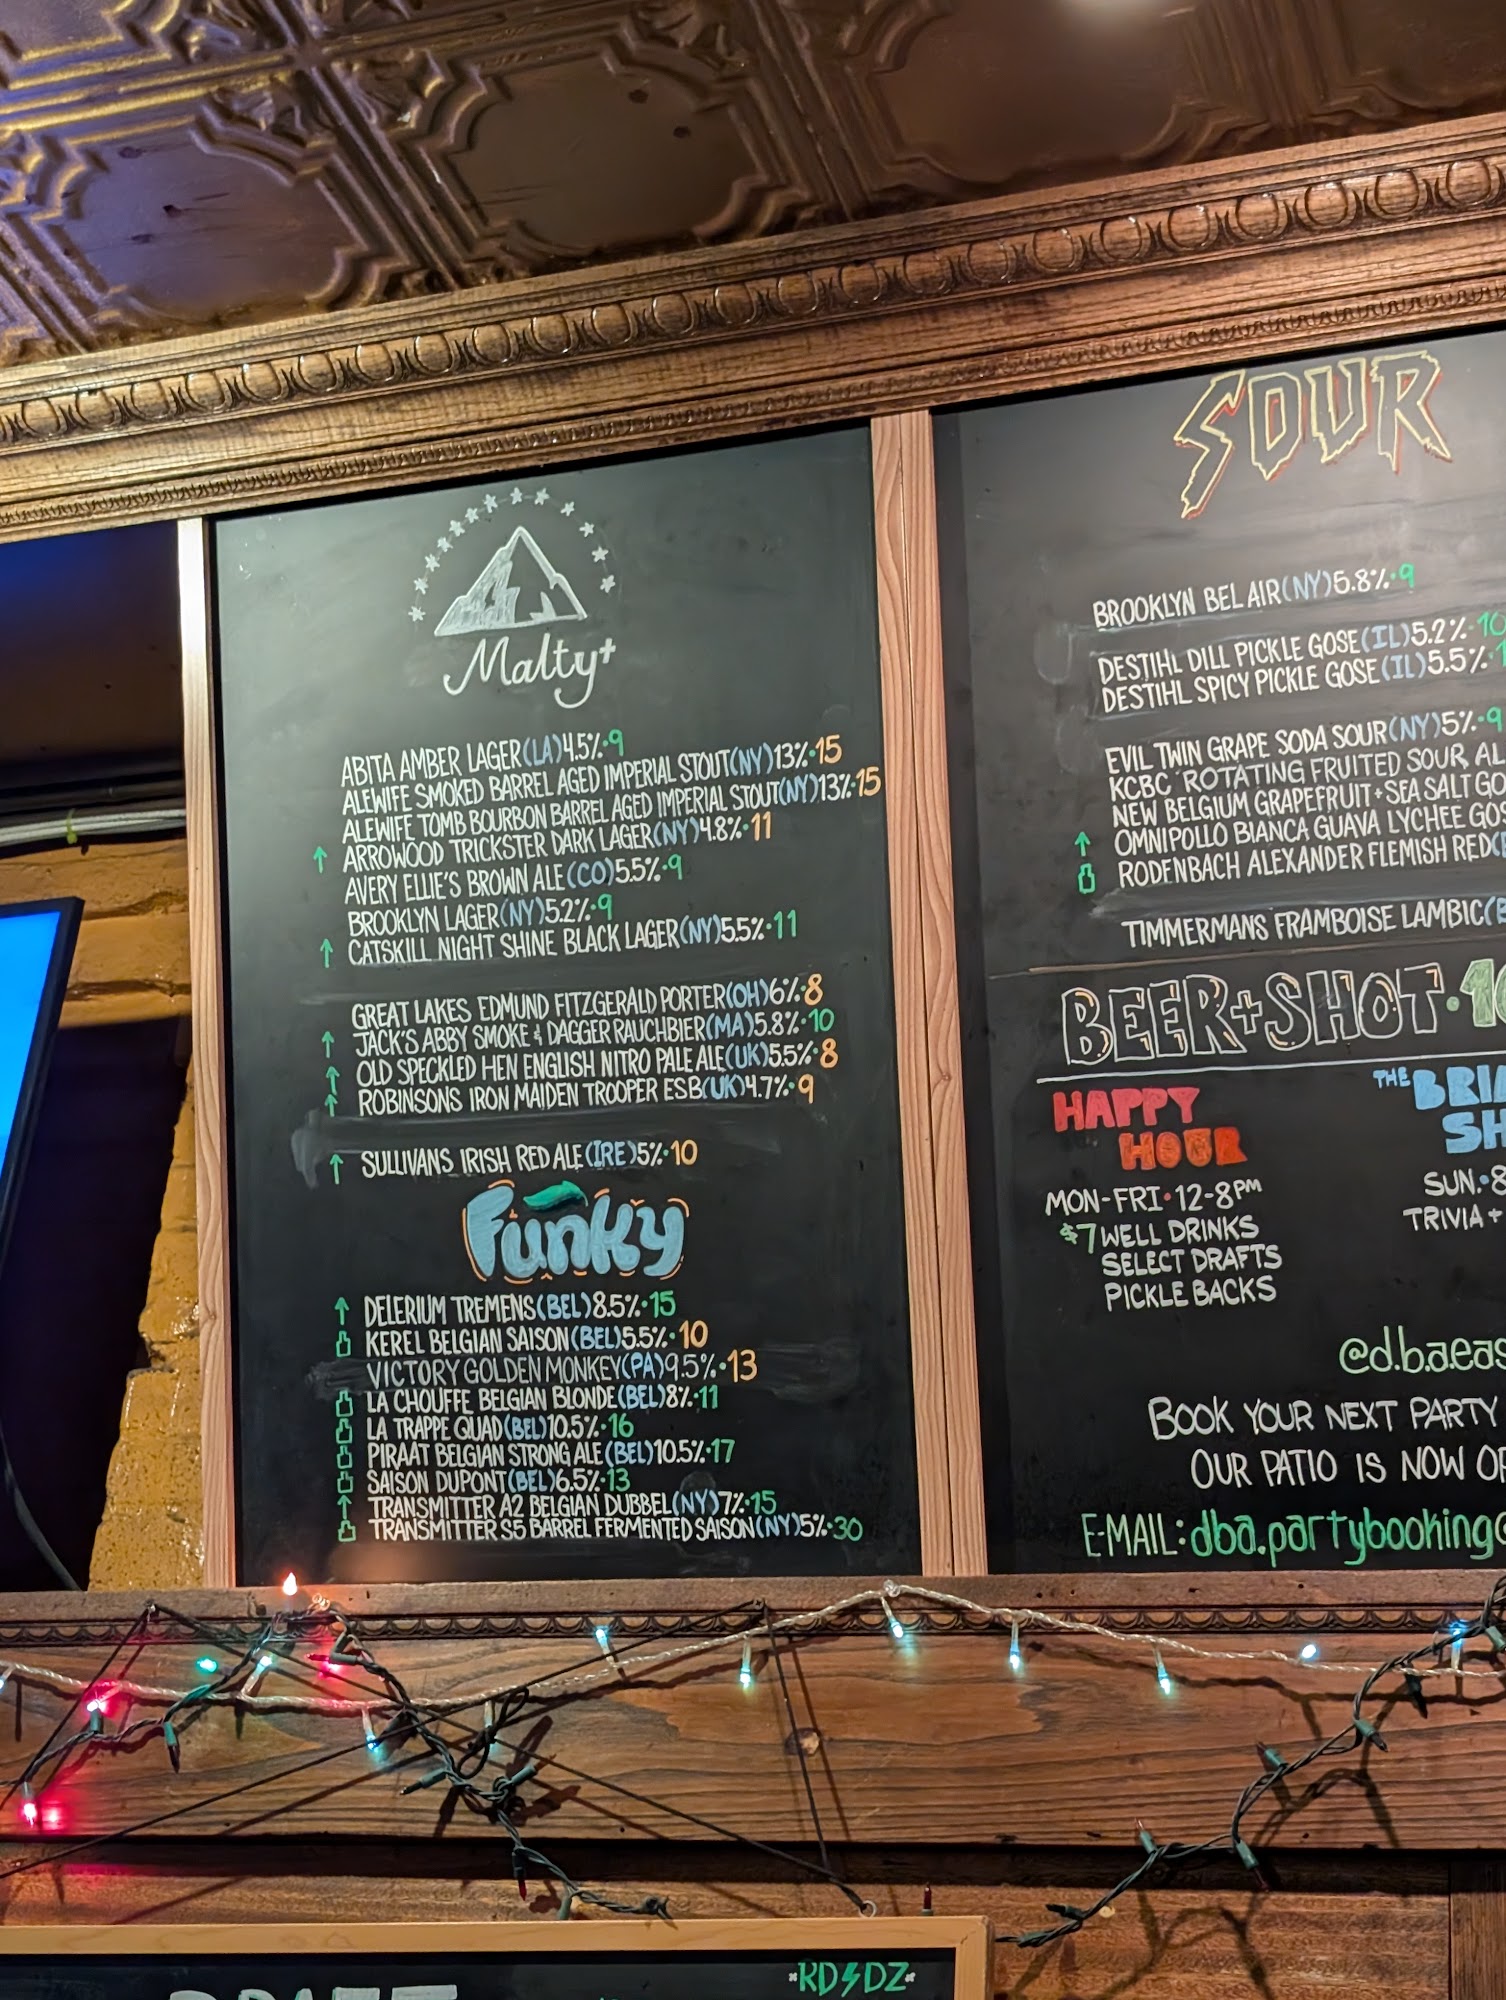 Malty+
ABITA AMBER LAGER(LA)4.5%·9
ALEWIFE SMOKED BARREL AGED IMPERIAL STOUT(NY)13%·15
ALEWIFE TOMB BOURBON BARREL AGED IMPERIAL STOUT(NY)13%·15
↑ ARROWOOD TRICKSTER DARK LAGER(NY)4.8%·11
AVERY ELLIE'S BROWN ALE(CO)5.5%·9
BROOKLYN LAGER(NY)5.2%·9
↑ CATSKILL NIGHT SHINE BLACK LAGER(NY)5.5%·11
GREAT LAKES EDMUND FITZGERALD PORTER(OH)6%·8
↑ JACK'S ABBY SMOKE & DAGGER RAUCHBIER(MA)5.8%·10
↑ OLD SPECKLED HEN ENGLISH NITRO PALE ALE(UK)5.5%·8
↑ ROBINSONS IRON MAIDEN TROOPER ESB(UK)4.7%·9
↑ SULLIVANS IRISH RED ALE(IRE)5%·10
Funky
↑ DELERIUM TREMENS(BEL)8.5%·15
KEREL BELGIAN SAISON(BEL)5.5%·10
VICTORY GOLDEN MONKEY(PA)9.5%·13
LA CHOUFFE BELGIAN BLONDE(BEL)8%·11
LA TRAPPE QUAD(BEL)10.5%·16
PIRAAT BELGIAN STRONG ALE(BEL)10.5%·17
SAISON DUPONT(BEL)6.5%·13
↑ TRANSMITTER A2 BELGIAN DUBBEL(NY)7%·15
TRANSMITTER S5 BARREL FERMENTED SAISON(NY)5%·30
SOUR
BROOKLYN BEL AIR(NY)5.8%·9
DESTIHL DILL PICKLE GOSE(IL)5.2%·10
DESTIHL SPICY PICKLE GOSE(IL)5.5%·
EVIL TWIN GRAPE SODA SOUR(NY)5%·9
KCBC ROTATING FRUITED SOUR AL
NEW BELGIUM GRAPEFRUIT+SEA SALT GO
↑ OMNIPOLLO BIANCA GUAVA LYCHEE GOS
RODENBACH ALEXANDER FLEMISH RED(
TIMMERMANS FRAMBOISE LAMBIC(
BEER+SHOT·10
HAPPY
HOUR
MON-FRI·12-8PM
$7 WELL DRINKS
SELECT DRAFTS
PICKLE BACKS
THE BRIA
SH
SUN.·8
TRIVIA+
@d.b.a.eas
BOOK YOUR NEXT PARTY
OUR PATIO IS NOW OP
E-MAIL:dba.partybooking@
RD⚡DZ